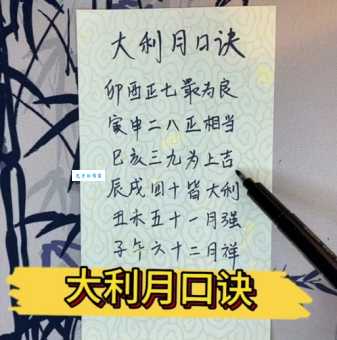 大利月口诀
卯酉正七最为良
寅申二八正相当
巳亥三九为上吉
辰戌四十皆大利
丑未五十一月强
子午六十二月祥
大利月口诀